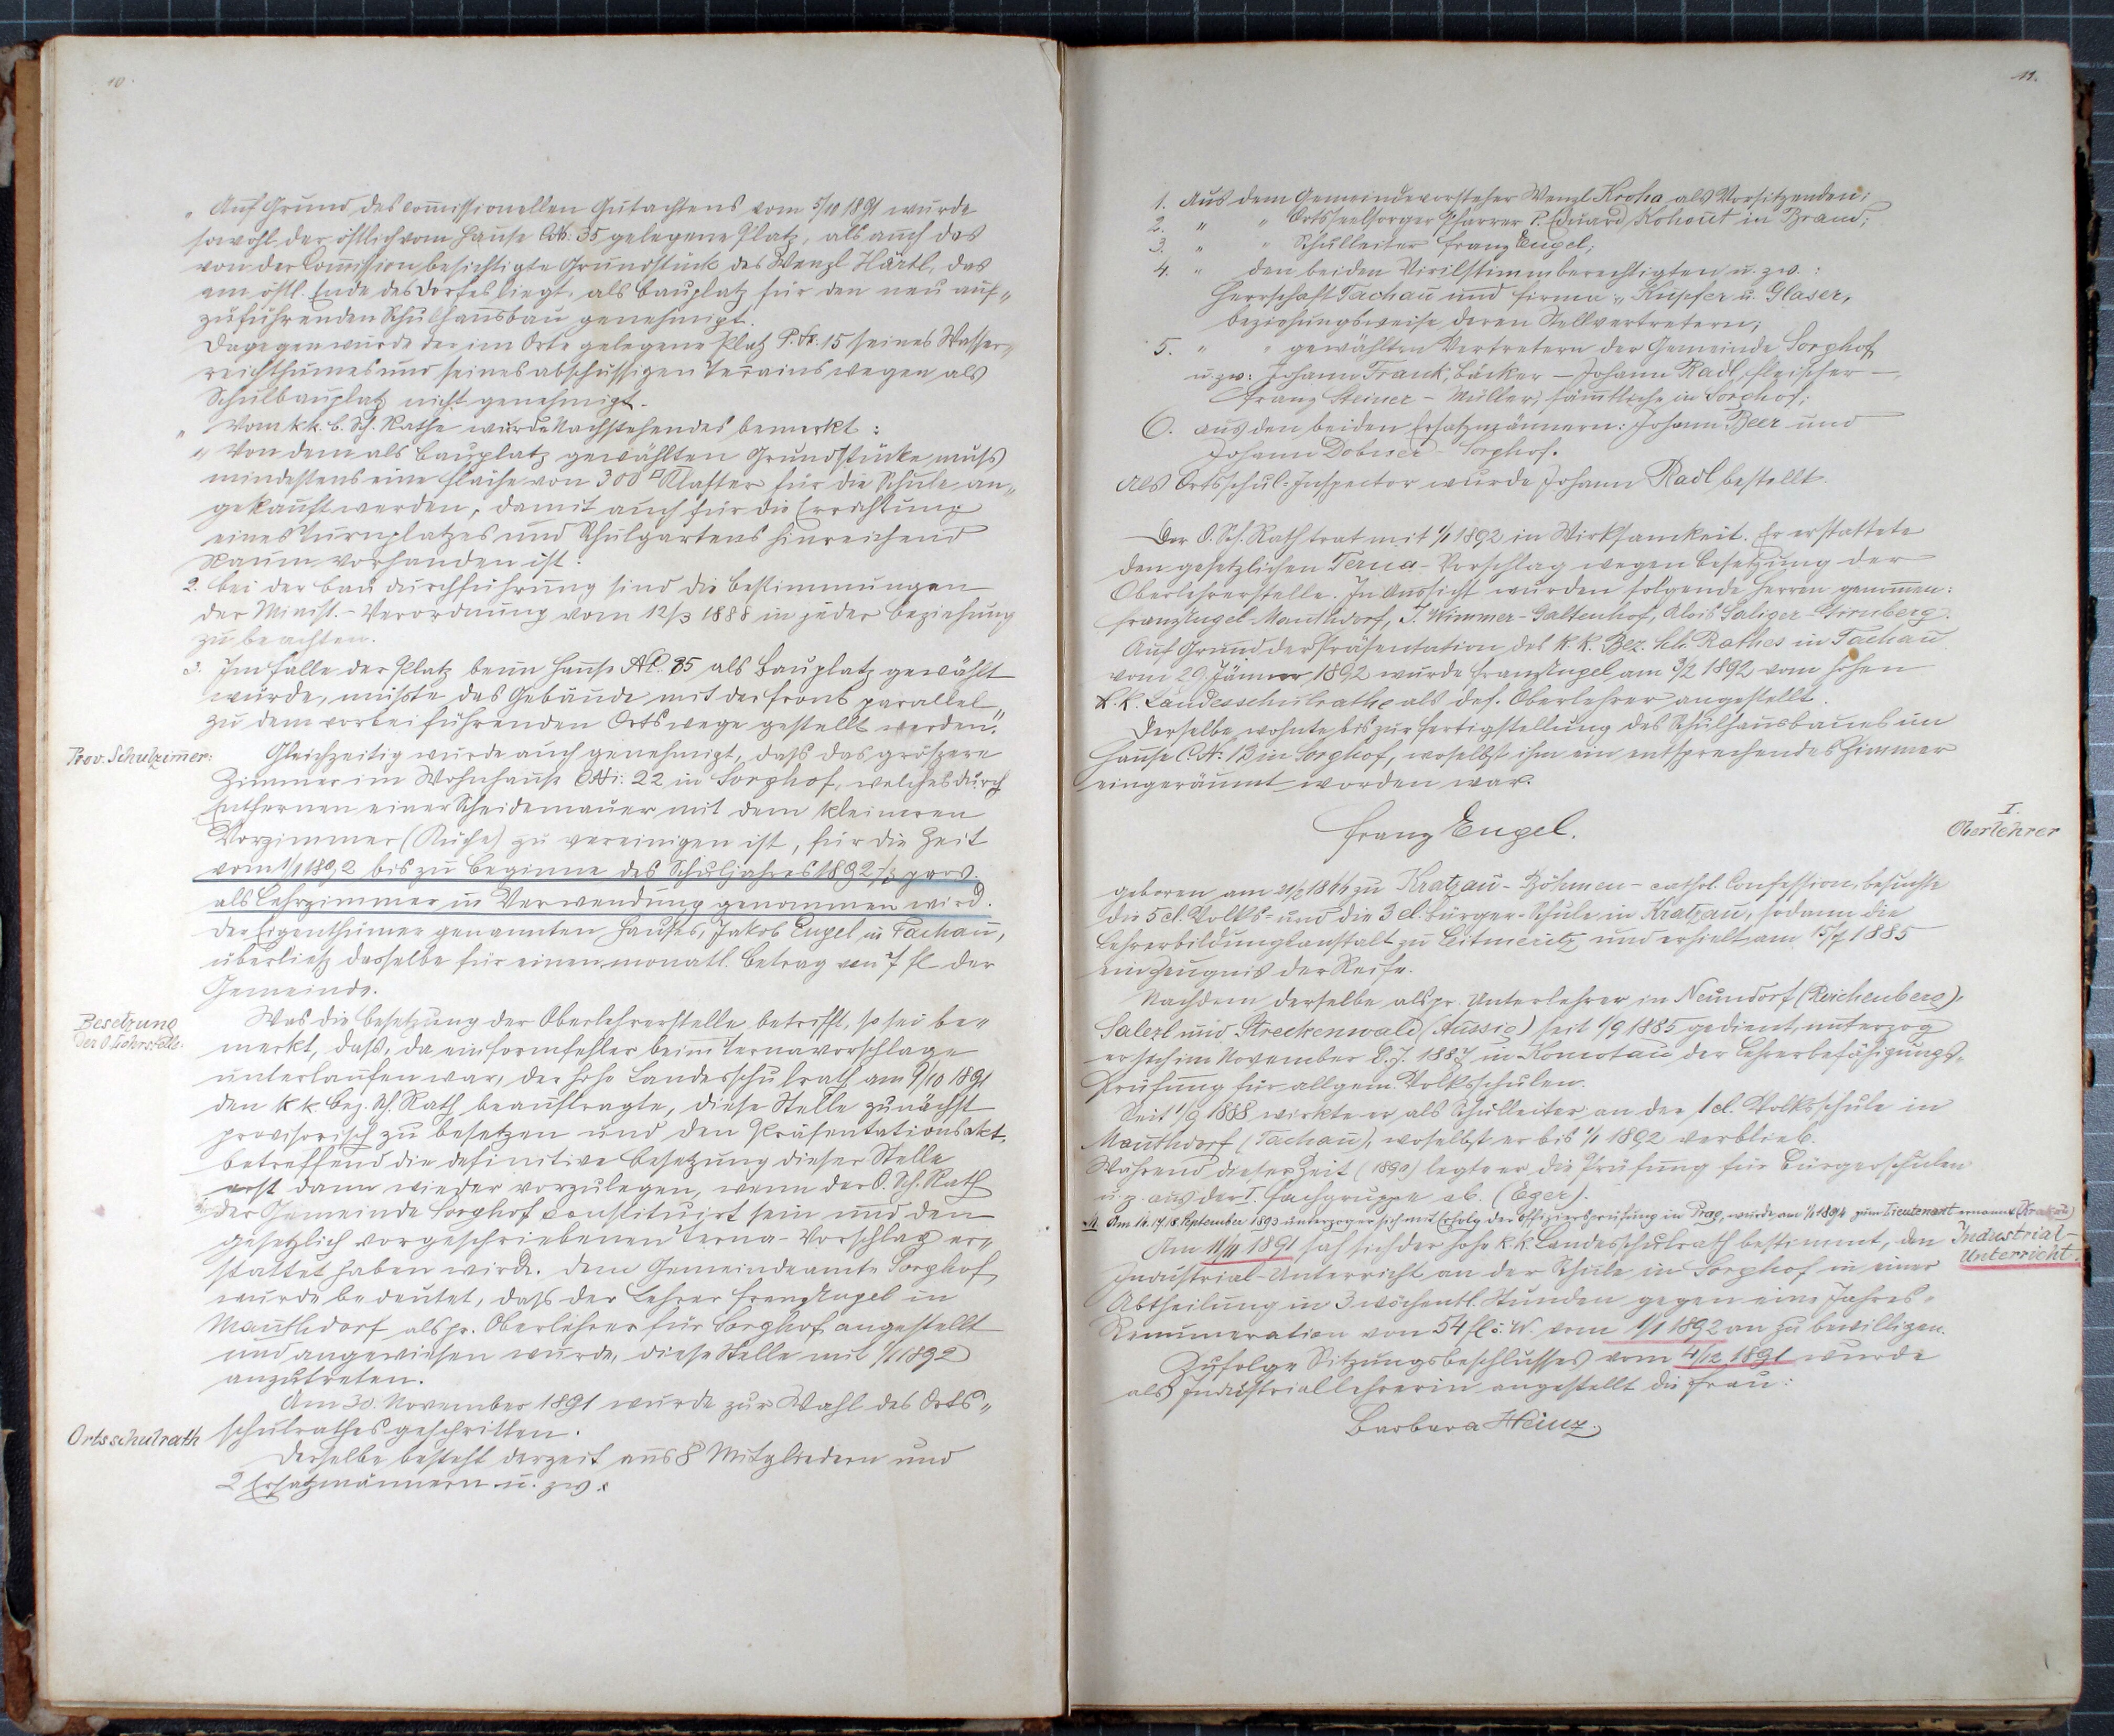 10.
„ Auf Grund des commissionellen Gutachtens vom 5/10 1891 wurde
sowohl der östlich vom Hause CNo: 35 gelegene Platz, als auch das
von der Commission besichtigte Grundstück des Wenzl Härtl, das
am östl. Ende des Dorfes liegt, als Bauplatz für den neu auf„
zuführenden Schulhausbau genehmigt.
Dagegen wurde der im Orte gelegene Platz P. Nr. 15 seines Wasser„
reichthumes und seines abschüssigen Terrains wegen als
Schulbauplatz nicht genehmigt.
„ Vom k.k. B. Sch. Rathe wurde Nachstehendes bemerkt:
„ Von dem als Bauplatz gewählten Grundstücke muss
mindestens eine Fläche von 300 □ Klafter für die Schule an„
gekauft werden, damit auch für die Errichtung
eines Turnplatzes und Schulgartens hinreichend
Raum vorhanden ist.
2. Bei der Baudurchführung sind die Bestimmungen
der Minist.-Verordnung vom 12/3 1888 in jeder Beziehung
zu beachten.
3. Im Falle der Platz beim Hause No. 35 als Bauplatz gewählt
würde, müsste das Gebäude mit der Front parallel
zu dem vorbeiführenden Ortswege gestellt werden."
Prov. Schulzimmer:
Gleichzeitig wurde auch genehmigt, daß das größere
Zimmer im Wohnhause CNo: 22 in Sorghof, welches durch
Entfernen einer Scheidemauer mit dem kleineren
Vorzimmer (Küche) zu vereinigen ist, für die Zeit
vom 1/1 1892 bis zu Beginne des Schuljahres 1892/3 prov.
als Lehrzimmer in Verwendung genommen wird.
Der Eigenthümer genannten Hauses, Jakob Engel in Tachau,
überließ dasselbe für einen monatl. Betrag von 7 fl der
Gemeinde.
Besetzung
der O. Lehrstelle.
Was die Besetzung der Oberlehrerstelle betrifft, so sei be„
merkt, daß, da ein Formfehler beim Ternavorschlage
unterlaufen war, der hohe Landesschulrath am 9/10 1891
den k k Bez. Sch. Rath beauftragte, diese Stelle zunächst
provisorisch zu besetzen und den Präsentationsakt
betreffend die definitive Besetzung dieser Stelle
erst dann wieder vorzulegen, wenn der O. Sch. Rath
der Gemeinde Sorghof constituirt sein und den
gesetzlich vorgeschriebenen Terna-Vorschlag er„
stattet haben wird. Dem Gemeindeamte Sorghof
wurde bedeutet, daß der Lehrer Franz Engel in
Mauthdorf als pr. Oberlehrer für Sorghof angestellt
und angewiesen wurde, diese Stelle mit 1/1 1892
anzutreten.
Am 30. November 1891 wurde zur Wahl des Orts„
Ortsschulrath
schulrathes geschritten.
Derselbe besteht derzeit aus 8 Mitgliedern und
2 Ersatzmännern u. zw.:
11.
1. Aus dem Gemeindevorsteher Wenzl Kroha als Vorsitzenden;
2. " " Ortsseelsorger Pfarrer P. Eduard Kohout in Brand;
3. " " Schulleiter Franz Engel;
4. " den beiden Virilstimmberechtigten u. zw.:
Herrschaft Tachau und Firma „Kupfer u. Glaser„
beziehungsweise deren Stellvertretern;
5. " " gewählten Vertretern der Gemeinde Sorghof
u. zw: Johann Frank, Bäcker – Johann Radl, Fleischer –
Franz Steiner – Müller, sämtliche in Sorghof;
6. aus den beiden Ersatzmännern: Johann Beer und
Johann Dobner – Sorghof.
Als Ortsschul-Inspector wurde Johann Radl bestellt.
Der O. Sch. Rath trat mit 1/1 1892 in Wirksamkeit. Er erstattete
den gesetzlichen Terna-Vorschlag wegen Besetzung der
Oberlehrerstelle. In Aussicht wurden folgende Herren genommen:
Franz Engel-Mauthdorf, J. Wimmer-Galtenhof, Alois Saliger-
Auf Grund der Präsentation des k.k. Bez. Sch. Rathes in Tachau
vom 29. Jänner 1892 wurde Franz Engel am 3/2 1892 vom hohen
k.k. Landesschulrathe als def. Oberlehrer angestellt.
Derselbe wohnte bis zur Fertigstellung des Schulhausbaues im
Hause C. No: 13 in Sorghof, woselbst ihm ein entsprechendes Zimmer
eingeräumt worden war.
Franz Engel.
I.
Oberlehrer
geboren am zu Kratzau-Böhmen-cathol. Confession, besuchte
die 5 cl. Volks- und die 3 cl. Bürger-Schule in Kratzau, sodann die
Lehrerbildungsanstalt zu Leitmeritz und erhielt am 15/7 1885
ein Zeugnis der Reife.
Nachdem derselbe als pr. Unterlehrer in Neundorf (Reichenberg),
Salezl und Streckenwald (Aussig) seit 1/9 1885 gedient, unterzog
er sich im November d. J. 1887 in Komotau der Lehrerbefähigungs-
Prüfung für allgem. Volksschulen.
Seit 1/9 1888 wirkte er als Schulleiter an der 1 cl. Volksschule in
Mauthdorf (Tachau), woselbst er bis 1/1 1892 verblieb.
Während dieser Zeit (1890) legte er die Prüfung für Bürgerschulen
u. z. aus der I. Fachgruppe ab. (Eger).
Am 16. 17. 18. September 1893 unterzog er sich mit Erfolg der Offiziersprüfung in Prag, wurde am 1/1 1894 zum Lieutenant ernannt (Krakau)
Am 11/11 1891 sah sich der hohe k.k. Landesschulrath bestimmt, den
Industrial-
Unterricht.
Industrial-Unterricht an der Schule in Sorghof in einer
Abtheilung in 3 wöchentl. Stunden gegen eine Jahres-
Remuneration von 54 fl ö. W. vom 1/1 1892 an zu bewilligen.
Zufolge Sitzungsbeschlusses vom 4/12 1891 wurde
als Industriallehrerin angestellt die Frau:
Barbara Heinz.